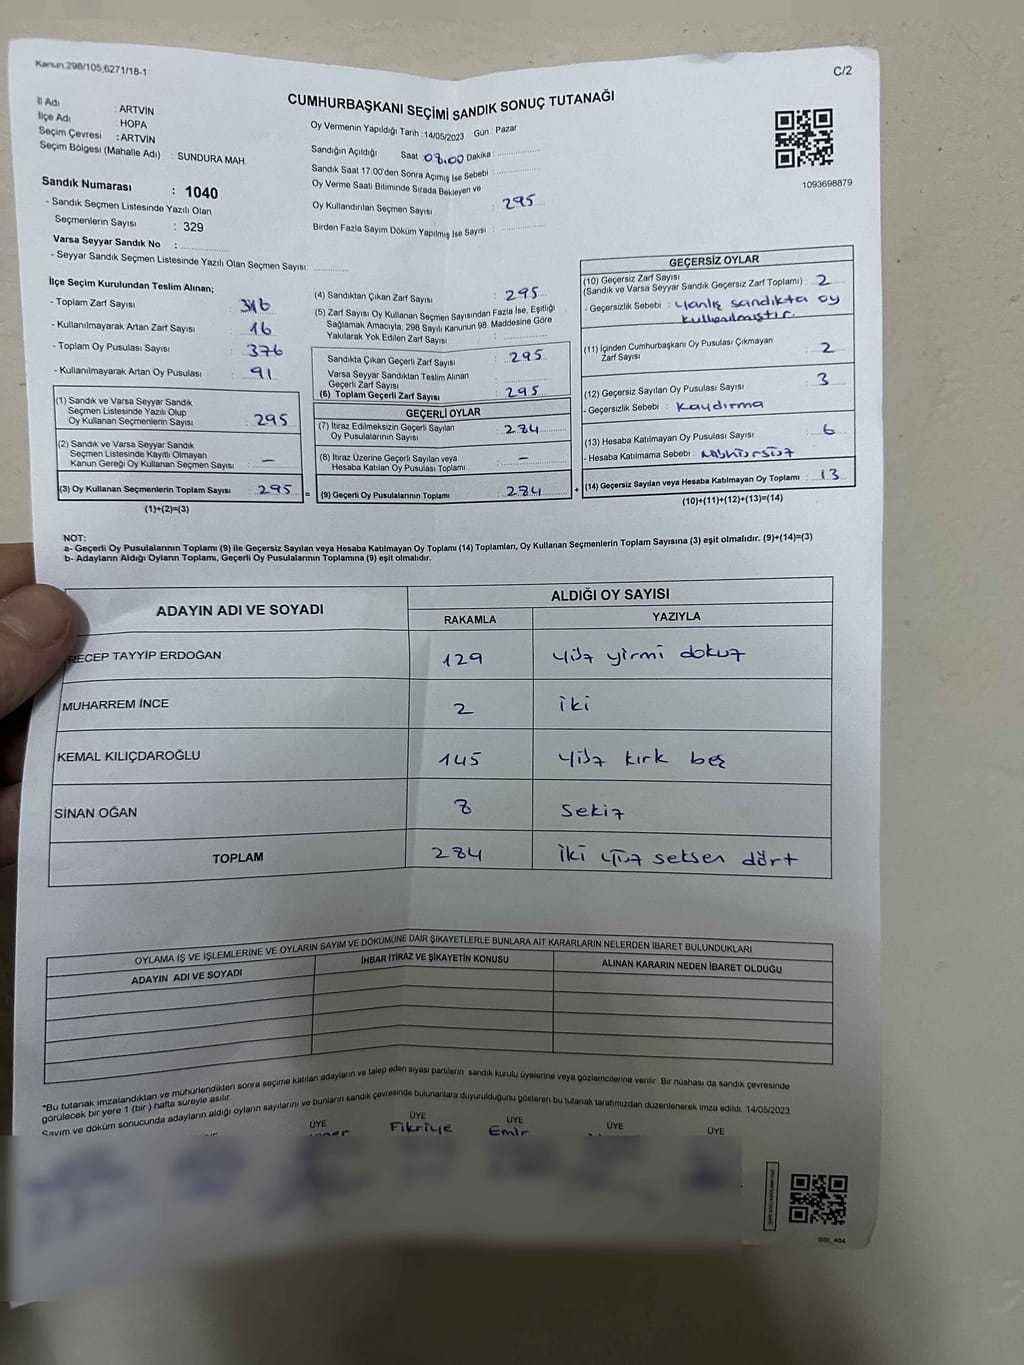 Kanun.298/105;6271/18-1
C/2
CUMHURBAŞKANI SEÇİMİ SANDIK SONUÇ TUTANAĞI
İl Adı : ARTVİN
İlçe Adı : HOPA
Seçim Çevresi : ARTVİN
Seçim Bölgesi (Mahalle Adı) : SUNDURA MAH.
Sandık Numarası : 1040
- Sandık Seçmen Listesinde Yazılı Olan
Seçmenlerin Sayısı : 329
Varsa Seyyar Sandık No :
- Seyyar Sandık Seçmen Listesinde Yazılı Olan Seçmen Sayısı:
Oy Vermenin Yapıldığı Tarih : 14/05/2023 Gün : Pazar
Sandığın Açıldığı Saat 08.00 Dakika :
Sandık Saat 17:00'den Sonra Açımış İse Sebebi :
Oy Verme Saati Bitiminde Sırada Bekleyen ve
Oy Kullandırılan Seçmen Sayısı : 295
Birden Fazla Sayım Döküm Yapılmış İse Sayısı :
1093698879
İlçe Seçim Kurulundan Teslim Alınan;
- Toplam Zarf Sayısı :
- Kullanılmayarak Artan Zarf Sayısı : 16
- Toplam Oy Pusulası Sayısı : 376
- Kullanılmayarak Artan Oy Pusulası : 91
(1) Sandık ve Varsa Seyyar Sandık
Seçmen Listesinde Yazılı Olup
Oy Kullanan Seçmenlerin Sayısı : 295
(2) Sandık ve Varsa Seyyar Sandık
Seçmen Listesinde Kayıtlı Olmayan
Kanun Gereği Oy Kullanan Seçmen Sayısı : –
(3) Oy Kullanan Seçmenlerin Toplam Sayısı : 295
(1)+(2)=(3)
=
(4) Sandıktan Çıkan Zarf Sayısı : 295
(5) Zarf Sayısı Oy Kullanan Seçmen Sayısından Fazla İse, Eşitliği
Sağlamak Amacıyla; 298 Sayılı Kanunun 98. Maddesine Göre
Yakılarak Yok Edilen Zarf Sayısı :
Sandıkta Çıkan Geçerli Zarf Sayısı : 295
Varsa Seyyar Sandıktan Teslim Alınan
Geçerli Zarf Sayısı :
(6) Toplam Geçerli Zarf Sayısı : 295
GEÇERLİ OYLAR
(7) İtiraz Edilmeksizin Geçerli Sayılan
Oy Pusulalarının Sayısı : 284
(8) İtiraz Üzerine Geçerli Sayılan veya
Hesaba Katılan Oy Pusulası Toplamı : –
(9) Geçerli Oy Pusulalarının Toplamı : 284
+
GEÇERSİZ OYLAR
(10) Geçersiz Zarf Sayısı
(Sandık ve Varsa Seyyar Sandık Geçersiz Zarf Toplamı) : 2
- Geçersizlik Sebebi : Yanlış sandıkta oy
kullanılmıştır.
(11) İçinden Cumhurbaşkanı Oy Pusulası Çıkmayan
Zarf Sayısı : 2
(12) Geçersiz Sayılan Oy Pusulası Sayısı : 3
- Geçersizlik Sebebi : Kaydırma
(13) Hesaba Katılmayan Oy Pusulası Sayısı : 6
- Hesaba Katılmama Sebebi : Mühürsüz
(14) Geçersiz Sayılan veya Hesaba Katılmayan Oy Toplamı : 13
(10)+(11)+(12)+(13)=(14)
NOT:
a- Geçerli Oy Pusulalarının Toplamı (9) ile Geçersiz Sayılan veya Hesaba Katılmayan Oy Toplamı (14) Toplamları, Oy Kullanan Seçmenlerin Toplam Sayısına (3) eşit olmalıdır. (9)+(14)=(3)
b- Adayların Aldığı Oyların Toplamı, Geçerli Oy Pusulalarının Toplamına (9) eşit olmalıdır.
ADAYIN ADI VE SOYADI
ALDIĞI OY SAYISI
RAKAMLA YAZIYLA
RECEP TAYYİP ERDOĞAN 129 Yüz yirmi dokuz
MUHARREM İNCE 2 iki
KEMAL KILIÇDAROĞLU 145 Yüz kırk beş
SİNAN OĞAN 8 Sekiz
TOPLAM 284 iki yüz seksen dört
OYLAMA İŞ VE İŞLEMLERİNE VE OYLARIN SAYIM VE DÖKÜMÜNE DAİR ŞİKAYETLERLE BUNLARA AİT KARARLARIN NELERDEN İBARET BULUNDUKLARI
ADAYIN ADI VE SOYADI İHBAR İTİRAZ VE ŞİKAYETİN KONUSU ALINAN KARARIN NEDEN İBARET OLDUĞU
*Bu tutanak imzalandıktan ve mühürlendikten sonra seçime katılan adayların ve talep eden siyasi partilerin sandık kurulu üyelerine veya gözlemcilerine verilir. Bir nüshası da sandık çevresinde
görülecek bir yere 1 (bir) hafta süreyle asılır.
Sayım ve döküm sonucunda adayların aldığı oyların sayılarını ve bunların sandık çevresinde bulunanlara duyurulduğunu gösteren bu tutanak tarafımızdan düzenlenerek imza edildi. 14/05/2023
ÜYE ÜYE ÜYE ÜYE ÜYE
Fikriye Emir